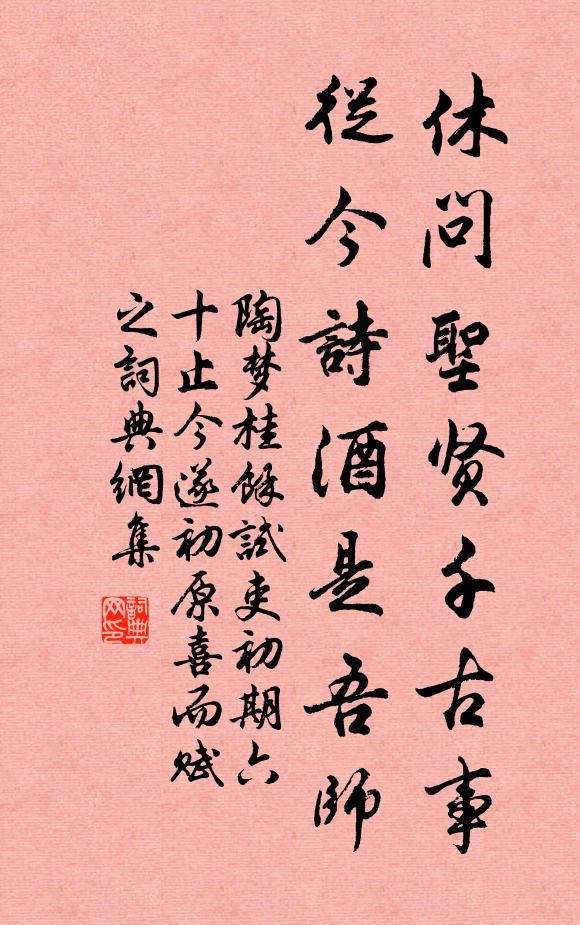 休问聖贤千古事
従今詩酒是吾師
陶梦桂餘試吏初期六
十止今遂初原喜而赋
之詞典網集
詞典
网印